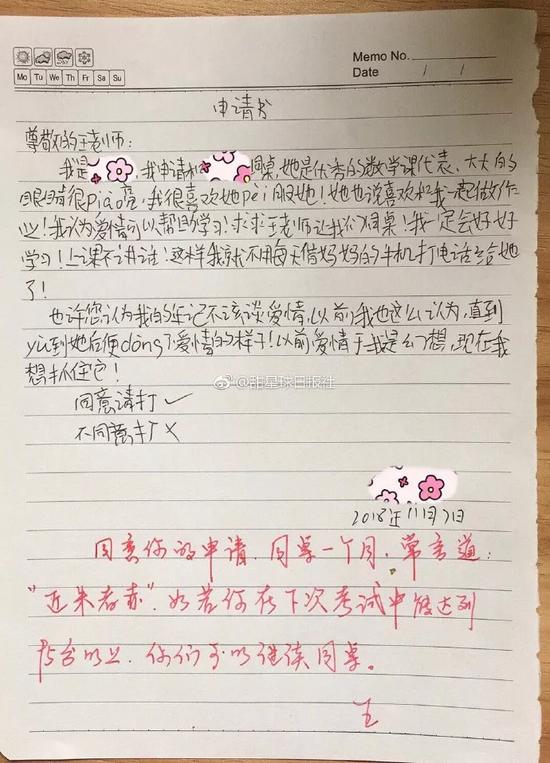 Memo No.
Mo Tu We Th Fr Sa Su
Date / /
申请书
尊敬的王老师：
我是 ，我申请和 同桌，她是优秀的数学课代表，大大的
眼睛很piào亮，我很喜欢她pèi服她！她也说喜欢和我一起做作
业！我认为爱情可以帮助学习！求求王老师让我们同桌！我一定会好好
学习！上课不讲话！这样我就不用每天借妈妈的手机打电话给她
了！
也许您认为我的年记不该谈爱情，以前我也这么认为，直到
yù到她后便dǒng了爱情的样子！以前爱情于我是幻想，现在我
想抓住它！
同意请打✓
不同意打×
@甜星球日报社
2018年11月7日
同意你的申请，同桌一个月，常言道：
“近朱者赤”，如若你在下次考试中能达到
95分以上，你们可以继续同桌。
王